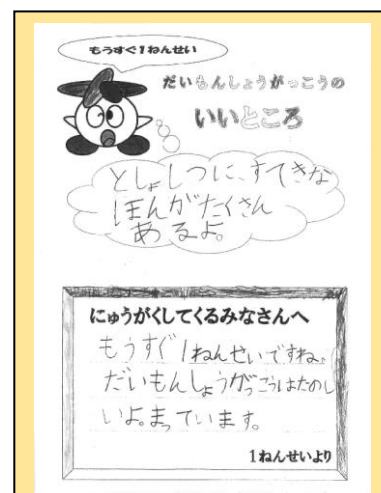 もうすぐ1ねんせい
だいもんしょうがっこうの
いいところ
としょしつに、すてきな
ほんがたくさん
あるよ。
にゅうがくしてくるみなさんへ
もうすぐ1ねんせいですね。
だいもんしょうがっこうはたのし
いよ。まっています。
1ねんせいより